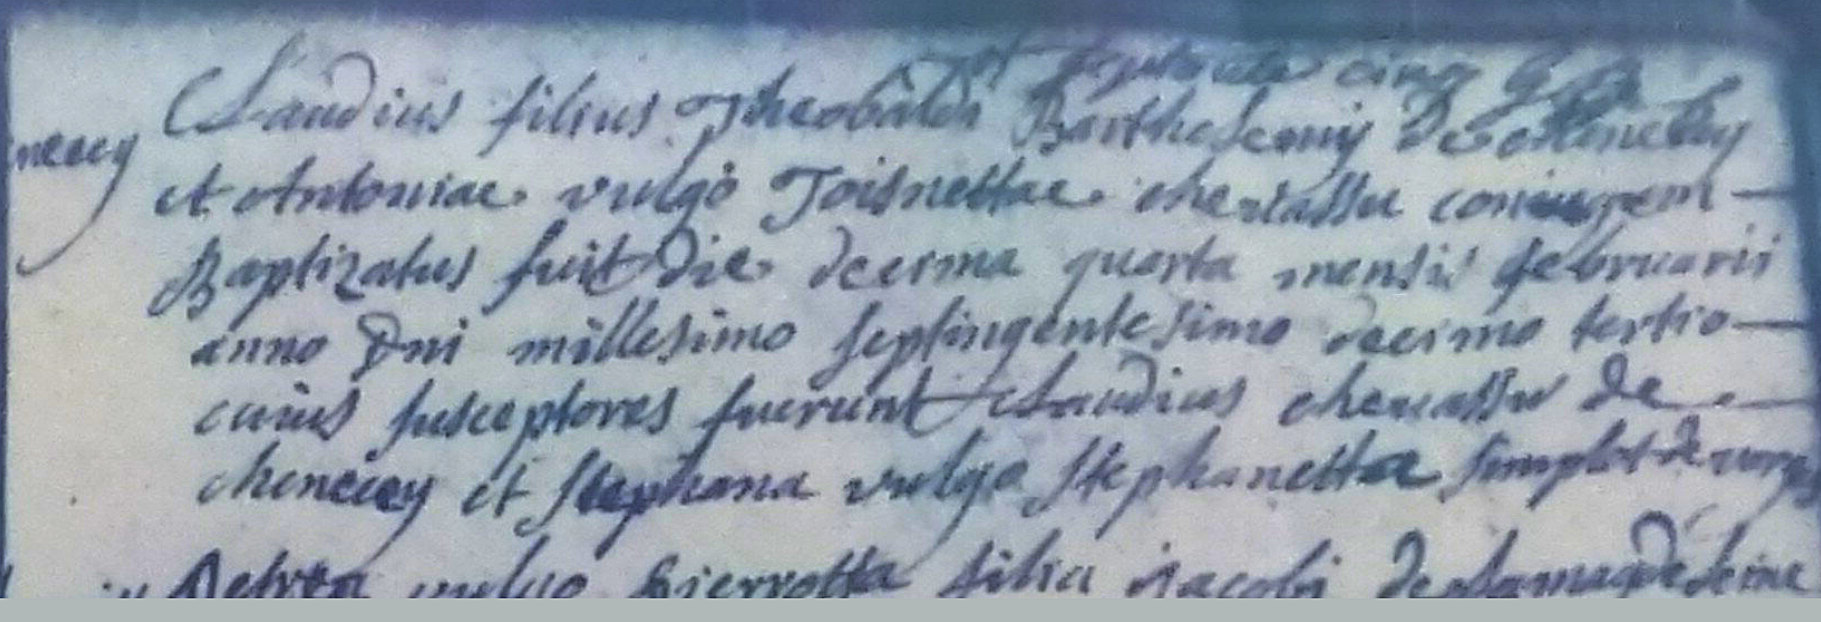 et septante cinq
Claudius filius Theobaldi Barthelemy de chenecey
necey
et Antoniae vulgò Toisnettae chevassu coniugem
Baptizatus fuit die decima quarta mensis februarii
anno Dni millesimo septingentesimo decimo tertio
cuius susceptores fuerunt claudius chevassu de
chenecey et stephana vulgo stephanetta simplot de
Petrea vulgo pierrotta filia jacobi